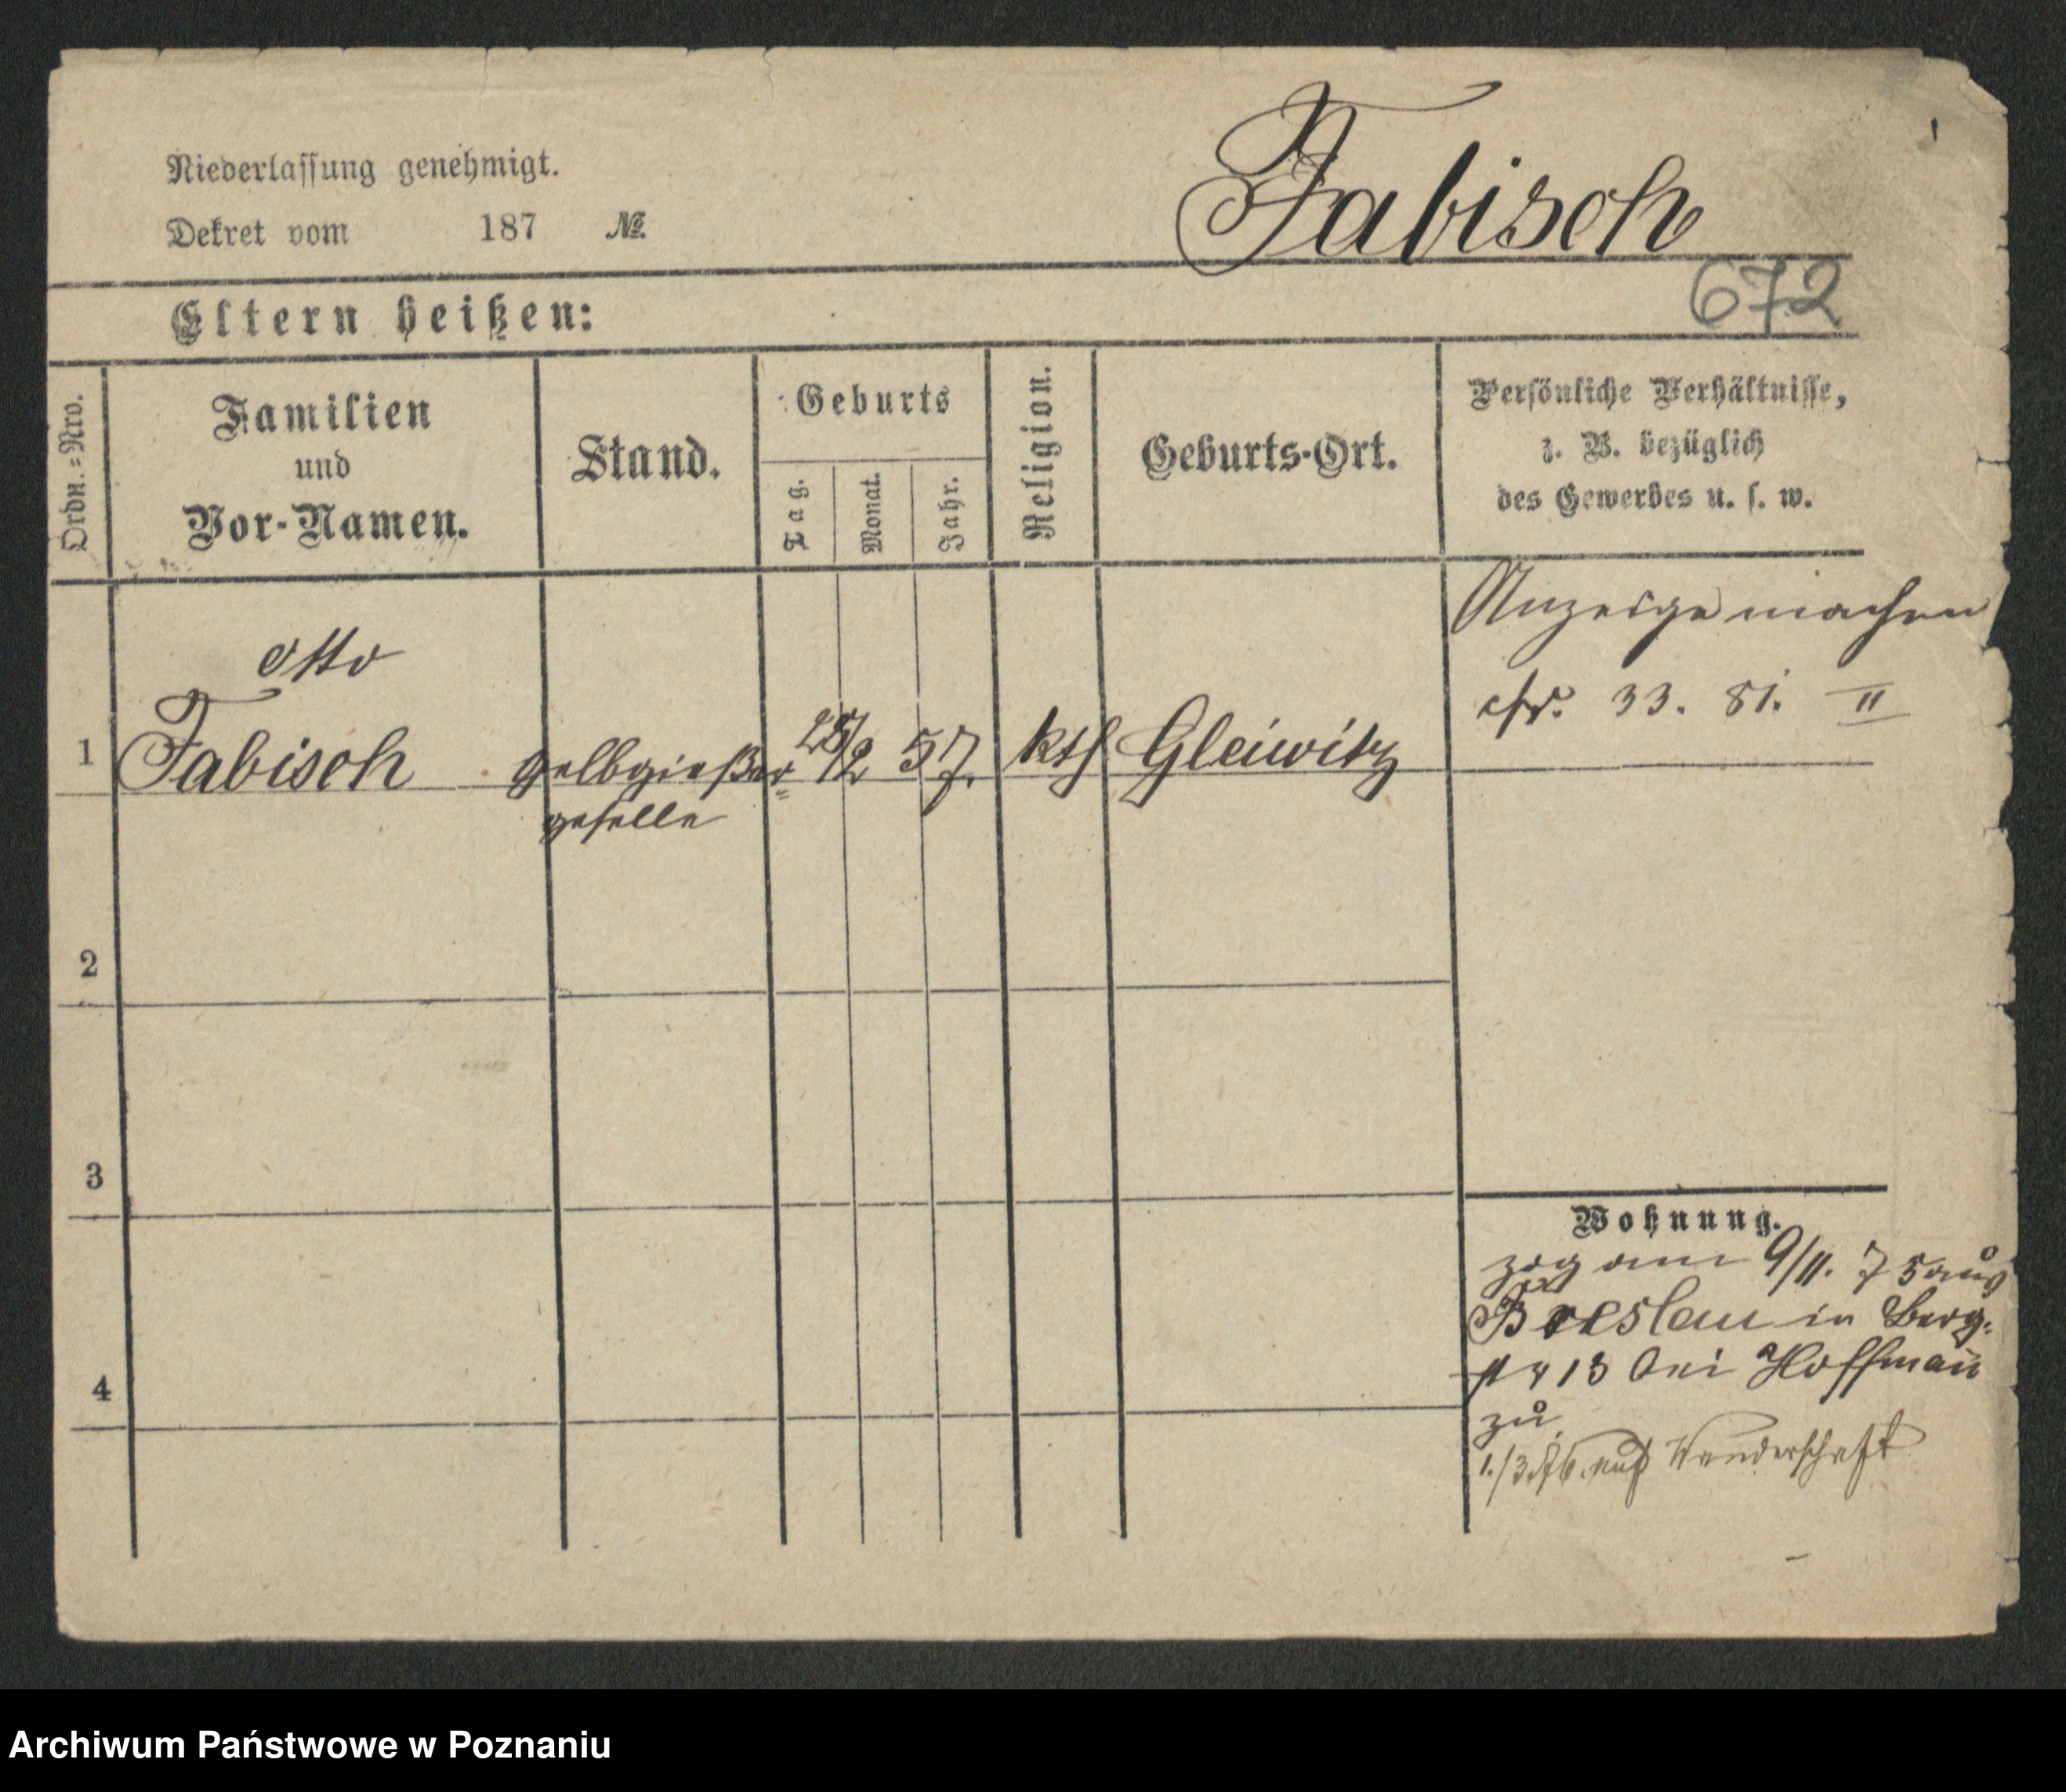 Niederlassung genehmigt.
Dekret vom 187 №.
Fabisch
672
Eltern heißen:
Ordn.=Nro.
Familien
und
Vor-Namen.
Stand.
Geburts
Tag.
Monat.
Jahr.
Religion.
Geburts-Ort.
Persönliche Verhältnisse,
z. B. bezüglich
des Gewerbes u. s. w.
Anzeige machen
cfr. 33. 81. II
Otto
1 Fabisch Gelbgießer= /2 57. kth Gleiwitz
geselle
2
3
4
Wohnung.
zog am 9/11. 75 aus
Breslau in Berg:
13 bei Hoffman̄
zu
1./3. 76. auf Wanderschaft
Archiwum Państwowe w Poznaniu